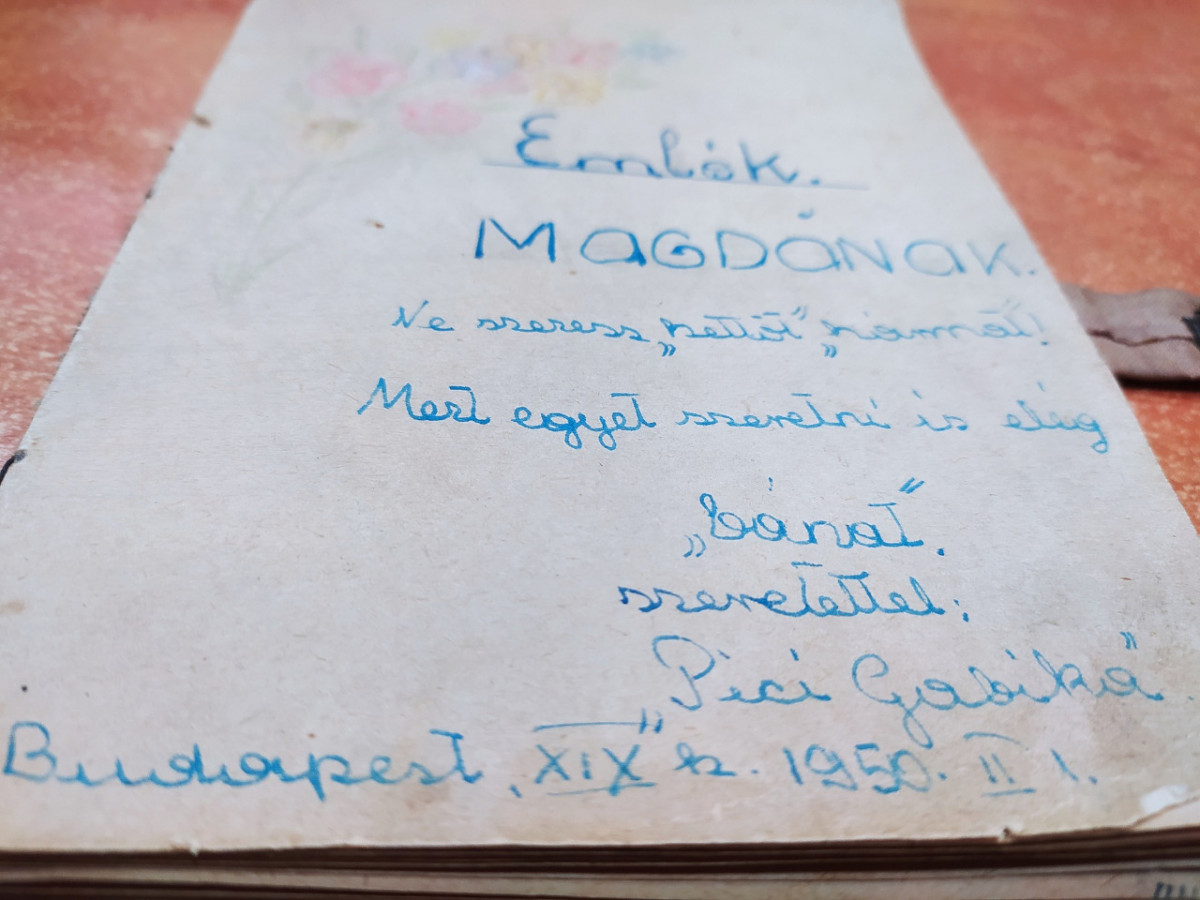 Emlék.
MAGDÁNAK.
Ne szeress „kettőt” „hármat”!
Mert egyet szeretni is elég
„bánat”.
szeretettel:
„Pici Gabika”
Budapest, XIX k. 1950. II 1.